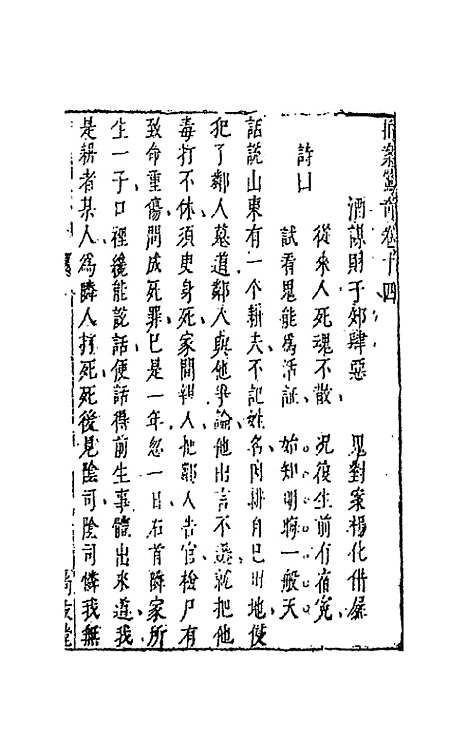 拍案驚奇卷十四
酒謀財于郊肆惡　鬼對案楊化借屍
詩曰
從來人死魂不散　况復生前有宿冤
試看鬼能為活証　始知明晦一般天
話說山東有一个耕夫不記姓名因耕自已田地侵
犯了鄰人墓道鄰人與他爭論他出言不遜就把他
毒打不休須臾身死家間親人把鄰人告官檢尸有
致命重傷問成死罪已是一年忽一日右首鄰家所
生一子口裡纔能說話便話得前生事體出來道我
是耕者某人為隣人打死死後見陰司陰司憐我無
尚友堂